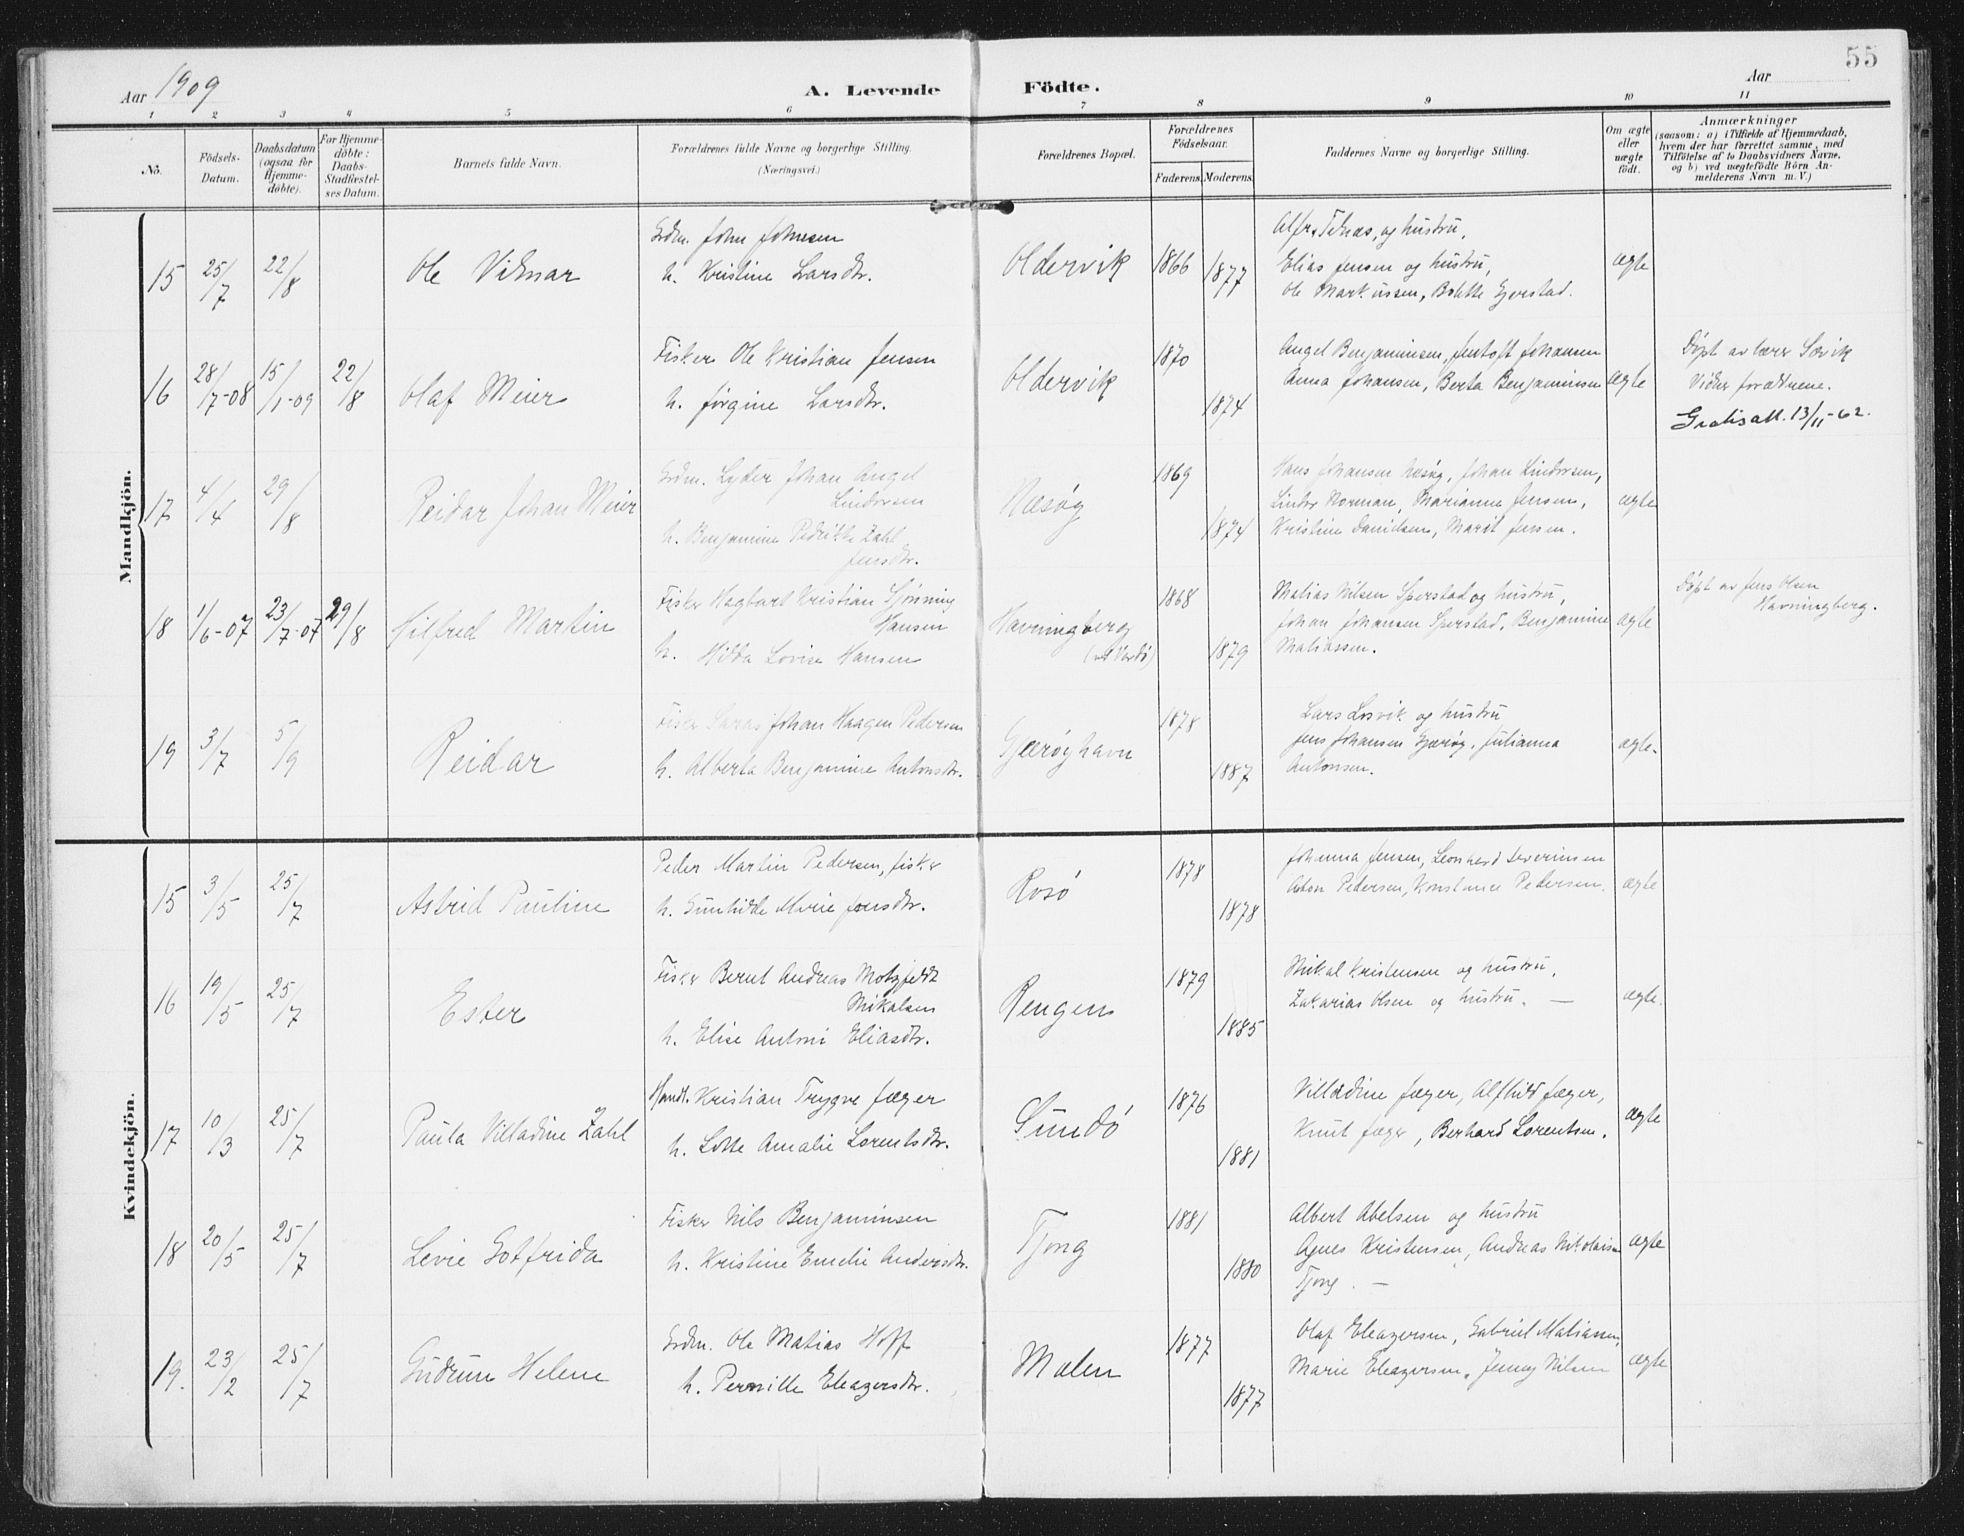 55
Aar 1909
A. Levende Födte.
Aar
1 2 3 4 5 6 7 8 9 10 11
No.
Födsels-Datum.
Daabsdatum (ogsaa for Hjemme-döbte).
For Hjemme-döbte: Daabs-Stadfæstel-ses Datum.
Barnets fulde Navn.
Forældrenes fulde Navne og borgerlige Stilling.
(Næringsvei.)
Forældrenes Bopæl.
Forældrenes Födselsaar.
Faderens. Moderens.
Faddernes Navne og borgerlige Stilling.
Om ægte eller uægte födt.
Anmærkninger
(saasom: a) i Tilfælde af Hjemmedaab,
hvem der har forrettet samme, med
Tilföielse af to Daabsvidners Navne,
og b) ved uægtefödte Börn An-
melderens Navn m. V.)
Mandkjön.
15 25/7 22/8 Ole Vilmar
Grdm. John Johnsen
h. Kristine Larsdtr.
Oldervik 1866 1877
og hustru,
Elias Jensen og hustru,
Ole Markussen, Bolette
ægte
16 28/7-08 15/1-09 22/8 Olaf Meier
Fisker Ole Kristian Jensen
h. Jørgine Larsdtr.
Oldervik 1870 1874
Angel Benjaminsen, Jentoft Johansen
Anna Johansen, Berta Benjaminsen
ægte
Döpt av lærer
Vidner forældrene.
Gratisatt. 13/11-62.
17 4/4 29/8 Reidar Johan Meier
Grdm. Lyder Johan Angel
Lindorsen
h. Benjamine Pedrikke Zahl
Jensdtr.
Næsøy 1869 1874
Hans Johansen Næsøy, Johan Lindorsen,
Lindor Norman, Marianne Jensen,
Kristine Danielsen, Marit Jensen.
ægte
18 1/6-07 23/7-07 29/8 Hilfred Martin
Fisker Hagbart Kristian Sjønning
Hansen
h. Hilda Lovise Hansen
Havningberg
(v/ Vardö)
1868 1879
Matias Nilsen Sperstad og hustru,
Johan Johansen Sperstad, Benjamine
Matiassen.
ægte
Döpt av Jens Olsen
Havningberg.
19 3/7 5/9 Reidar
Fisker Johan Haagen Pedersen
h. Alberta Benjamine Antonsdtr.
Gjærøyhavn 1878 1887
Lars Losvik og hustru
Jens Johansen Gjærøy, Julianna
Antonsen.
ægte.
Kvindekjön.
15 3/5 25/7 Astrid Pauline
Peder Martin Pedersen, fisker
h. Gunhilde Marie Jensdtr.
Rosö 1878 1878
Johanna Jensen, Leonhard Severinsen
Pedersen, Konstance Pedersen.
ægte
16 19/5 25/7 Ester
Fisker Bernt Andreas Motzfeldt
Mikalsen
h. Elise Antoni Eliasdtr.
Rengen 1879 1885
Mikal Kristensen og hustru,
Zakarias Olsen og hustru. —
ægte.
17 10/3 25/7 Paula Villadine Zahl
Handl. Kristian Trygve Jæger
h. Lotte Amalie Lorentsdtr.
Sundö 1876 1881
Villadine Jæger, Alfhild Jæger,
Knut Jæger, Berhard Lorentsen.
ægte
18 20/5 25/7 Levie Gotfrida
Fisker Nils Benjaminsen
h. Kristine Emelie Andersdtr.
Tjong 1881 1880
Albert Abelsen og hustru
Agnes Kristensen, Andreas Nikolaisen
Tjong. —
ægte
19. 23/2 25/7 Gudrun Helene
Grdm. Ole Matias Hoff
h. Pernille Eleazersdtr.
Malen 1877 1877
Olaf Eleazersen, Gabriel Matiassen,
Marie Eleazersen, Jenny Nilsen
ægte